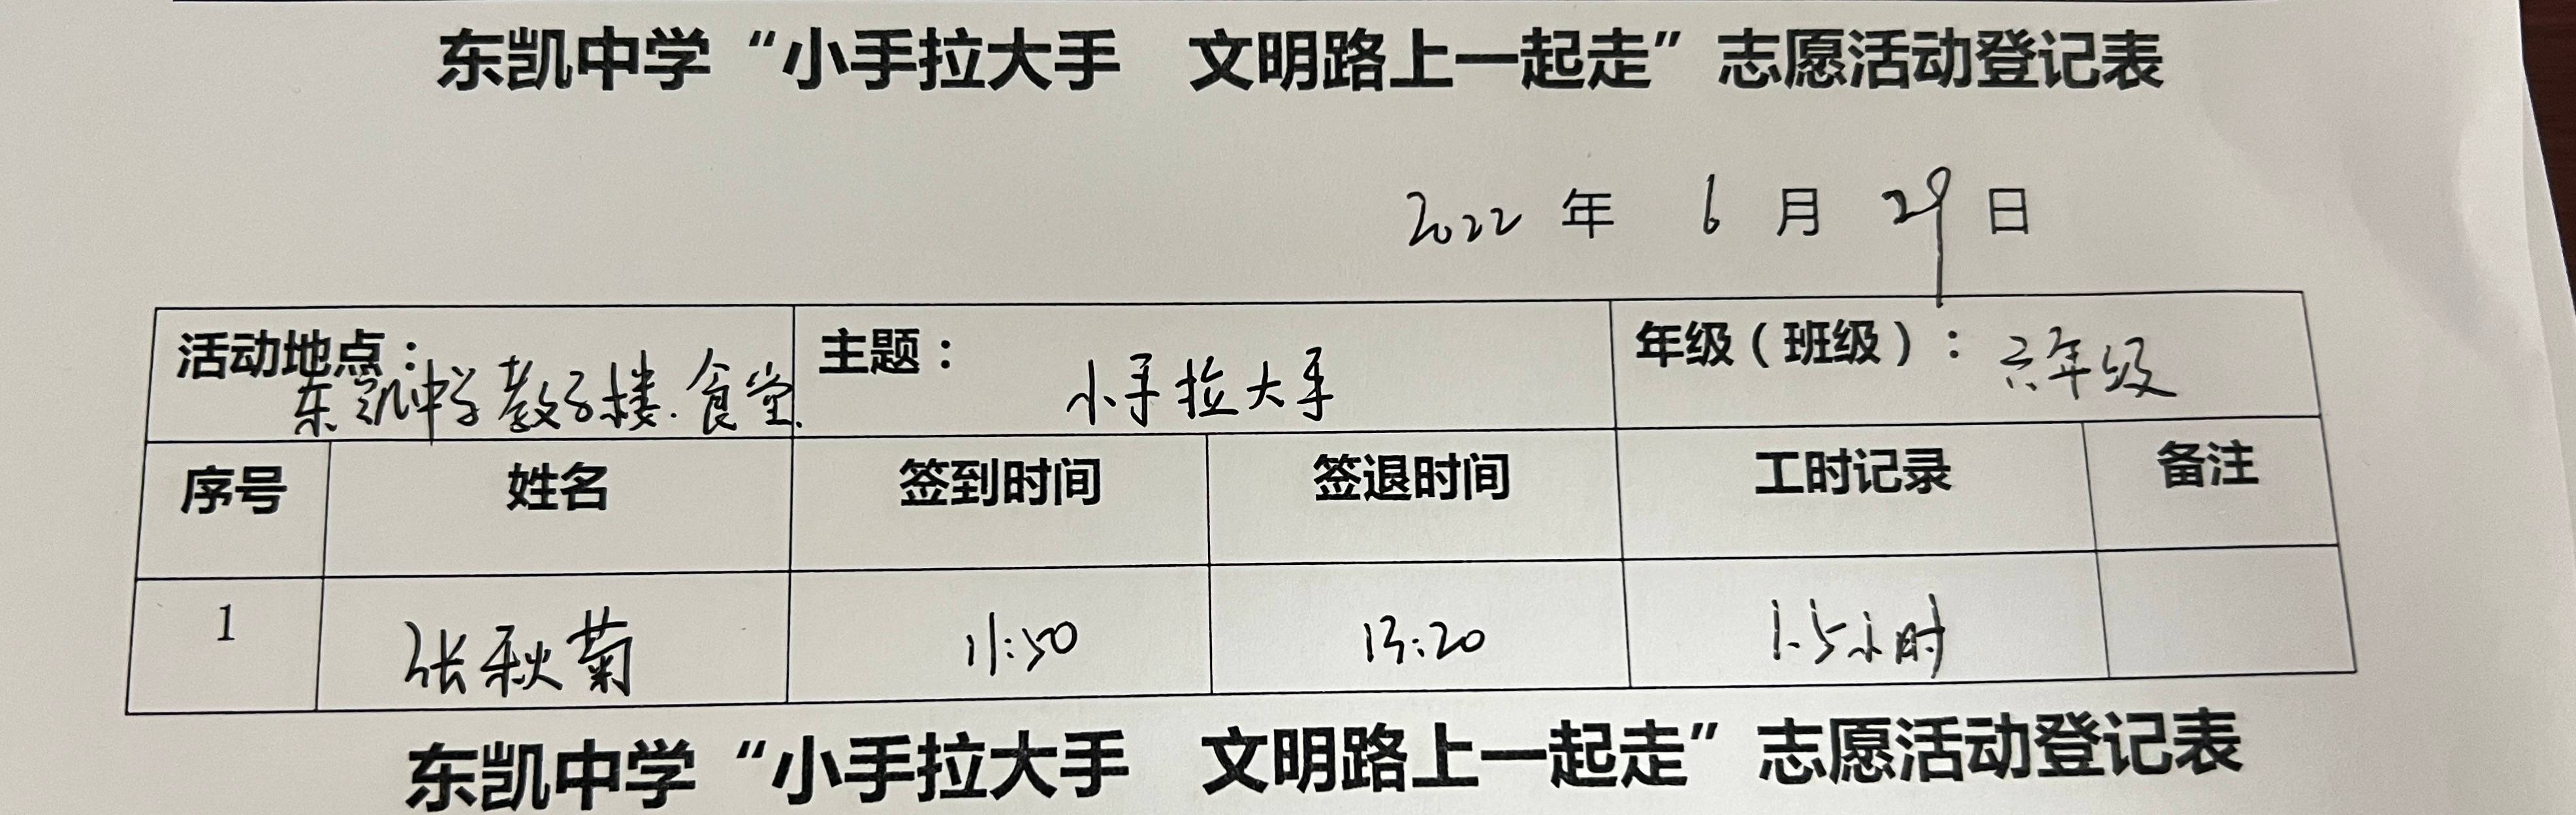 东凯中学“小手拉大手 文明路上一起走”志愿活动登记表
2022 年 6 月 29 日
活动地点： 东凯中学教学楼.食堂. 主题： 小手拉大手 年级（班级）： 六年级
序号 姓名 签到时间 签退时间 工时记录 备注
1 张秋菊 11:50 13:20 1.5小时
东凯中学“小手拉大手 文明路上一起走”志愿活动登记表